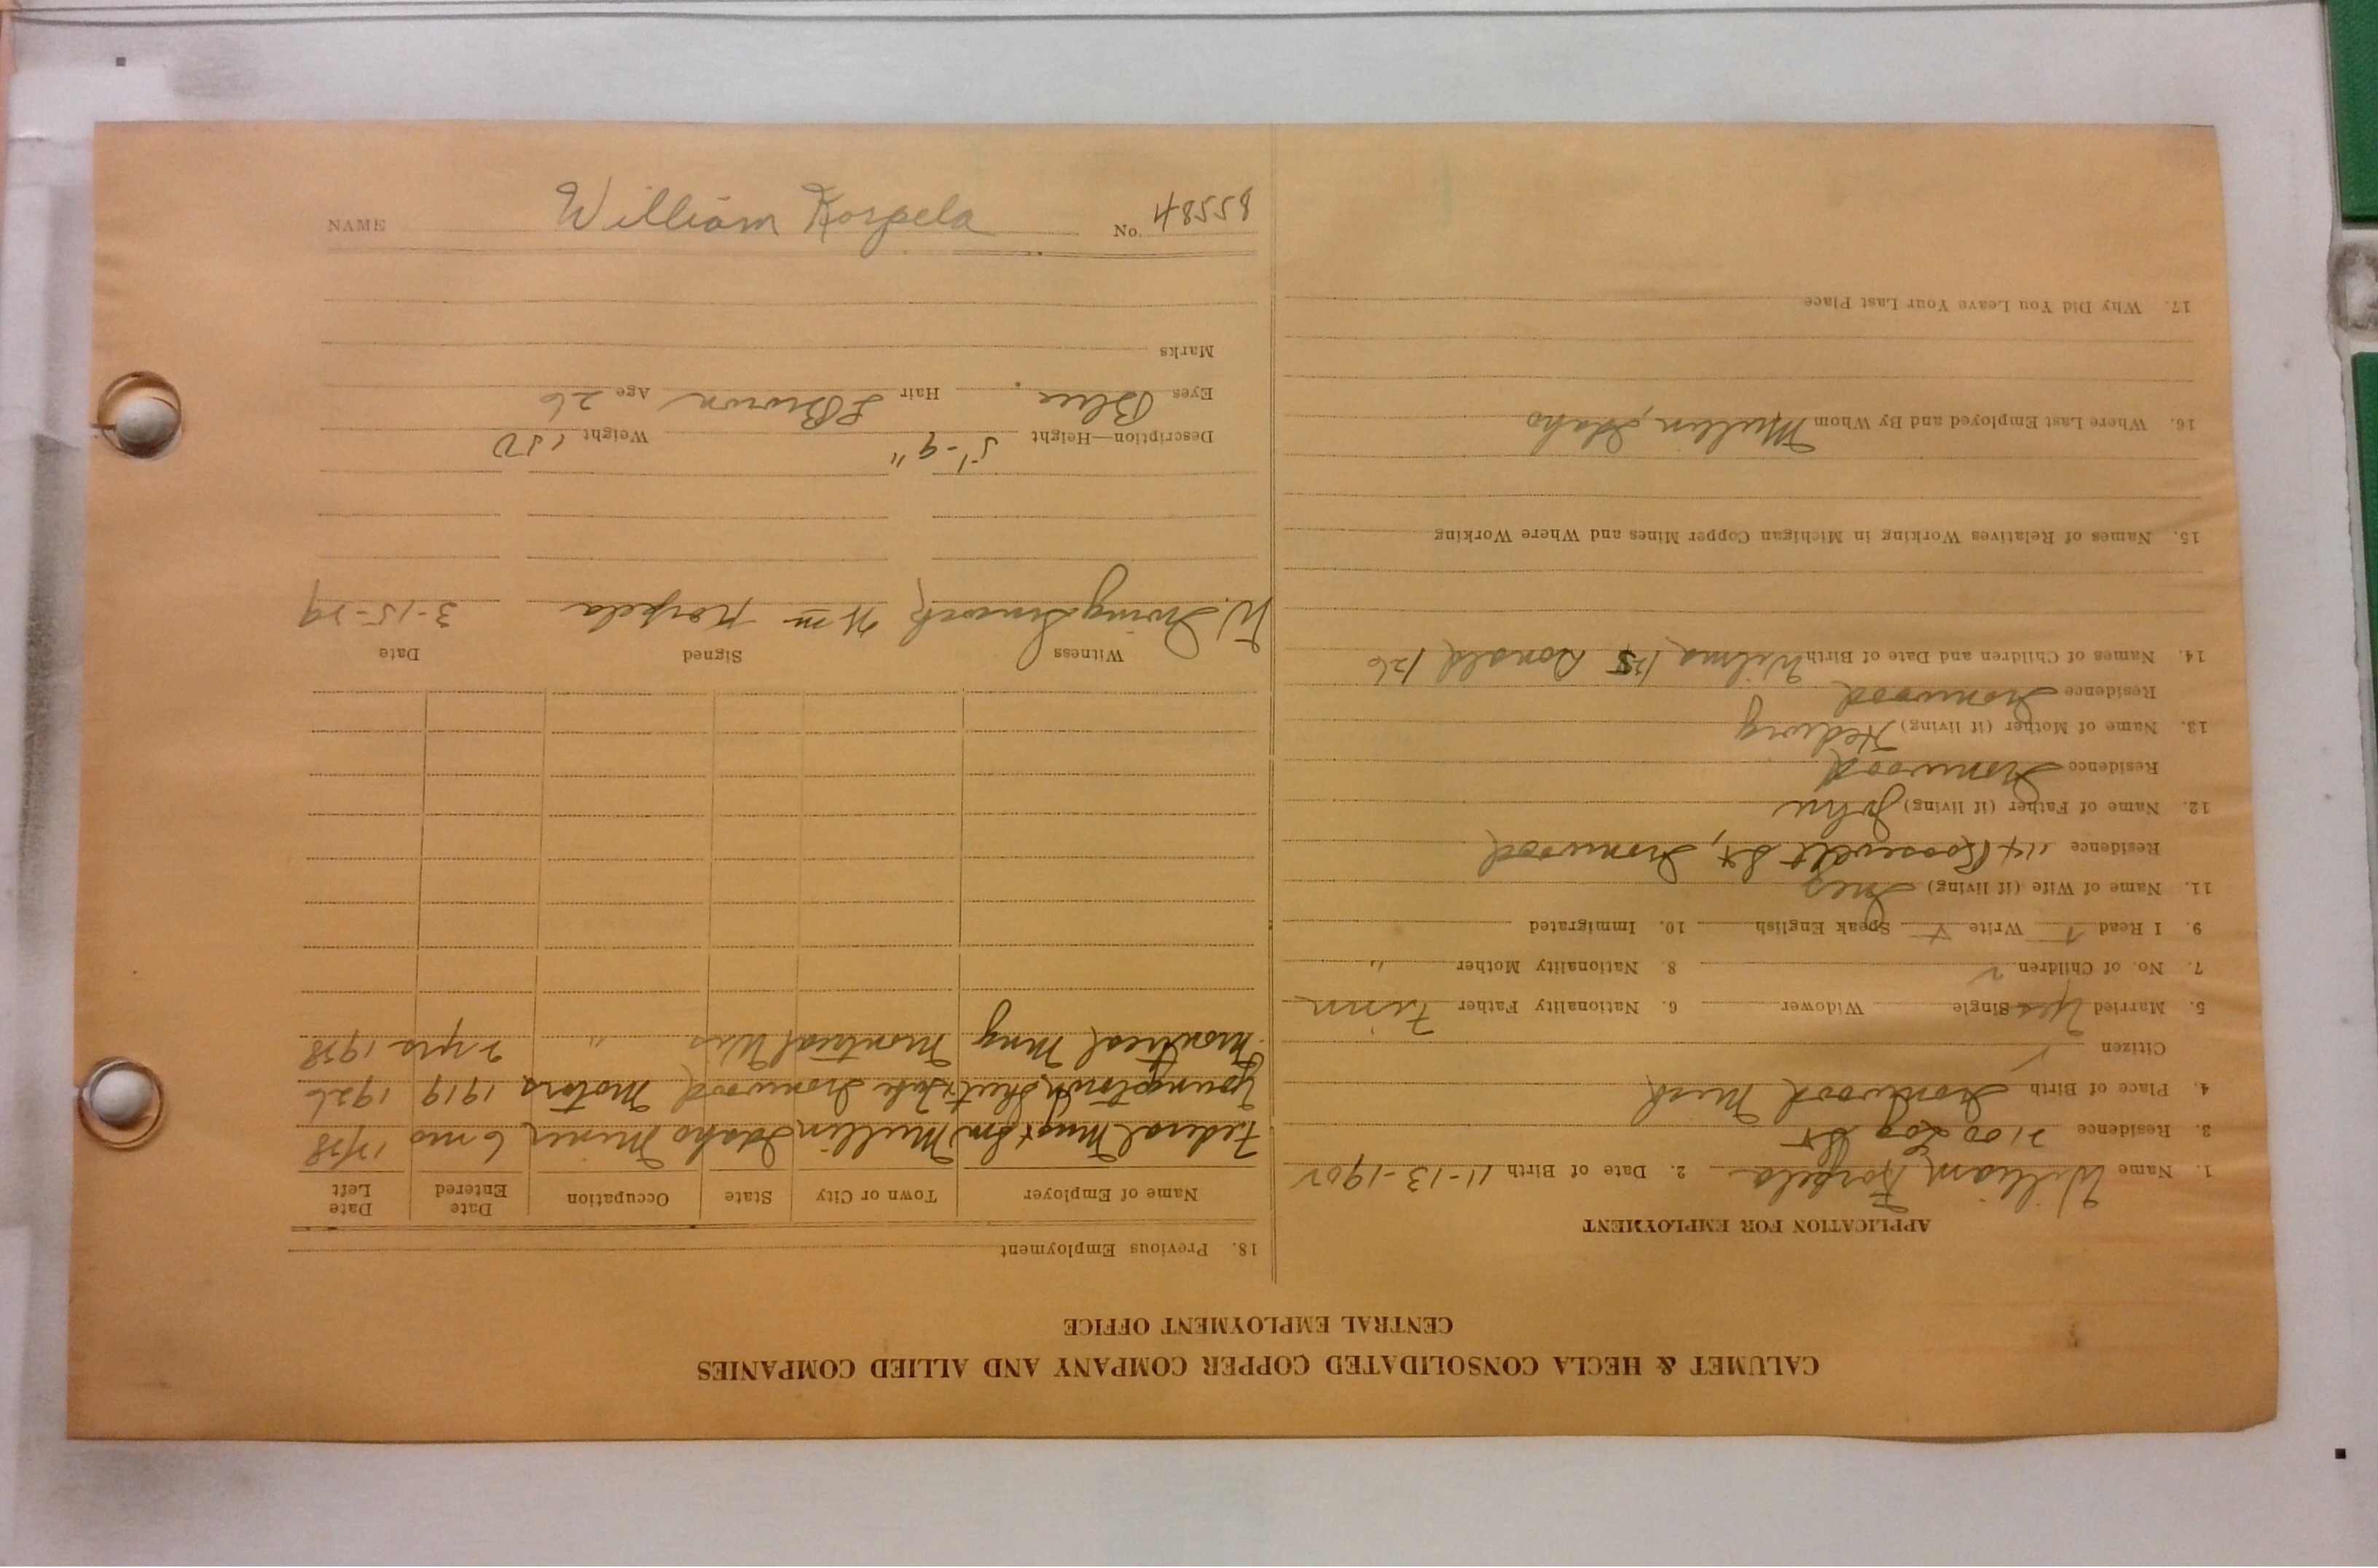 CALUMET & HECLA CONSOLIDATED COPPER COMPANY AND ALLIED COMPANIES
CENTRAL EMPLOYMENT OFFICE
APPLICATION FOR EMPLOYMENT
1. Name William Korpela 2. Date of Birth 11-13-1902
3. Residence 2100 Log St
4. Place of Birth Ironwood Mich
Citizen
5. Married Yes Single Widower 6. Nationality Father Finn
7. No. of Children 2 8. Nationality Mother "
9. I Read Write Speak English 10. Immigrated
11. Name of Wife (if living) Inez
Residence 114 Roosevelt St, Ironwood
12. Name of Father (if living) John
Residence Ironwood
13. Name of Mother (if living) Hedwig
Residence Ironwood
14. Names of Children and Date of Birth Wilma Ronald /26
15. Names of Relatives Working in Michigan Copper Mines and Where Working
16. Where Last Employed and By Whom Mullin, Idaho
17. Why Did You Leave Your Last Place
18. Previous Employment
Name of Employer Town or City State Occupation Date Entered Date Left
Federal Mullin Idaho Miner 6 mo
Youngstown Sheet & Tube Ironwood Motors 1919 1926
Montreal Mng Montreal Wis " 2 yrs 1928
Witness Signed Date
W. Irving Wm Korpela 3-15-29
Description—Height 5'-9" Weight 150
Eyes Blue Hair L Brown Age 26
Marks
NAME William Korpela No. 48558